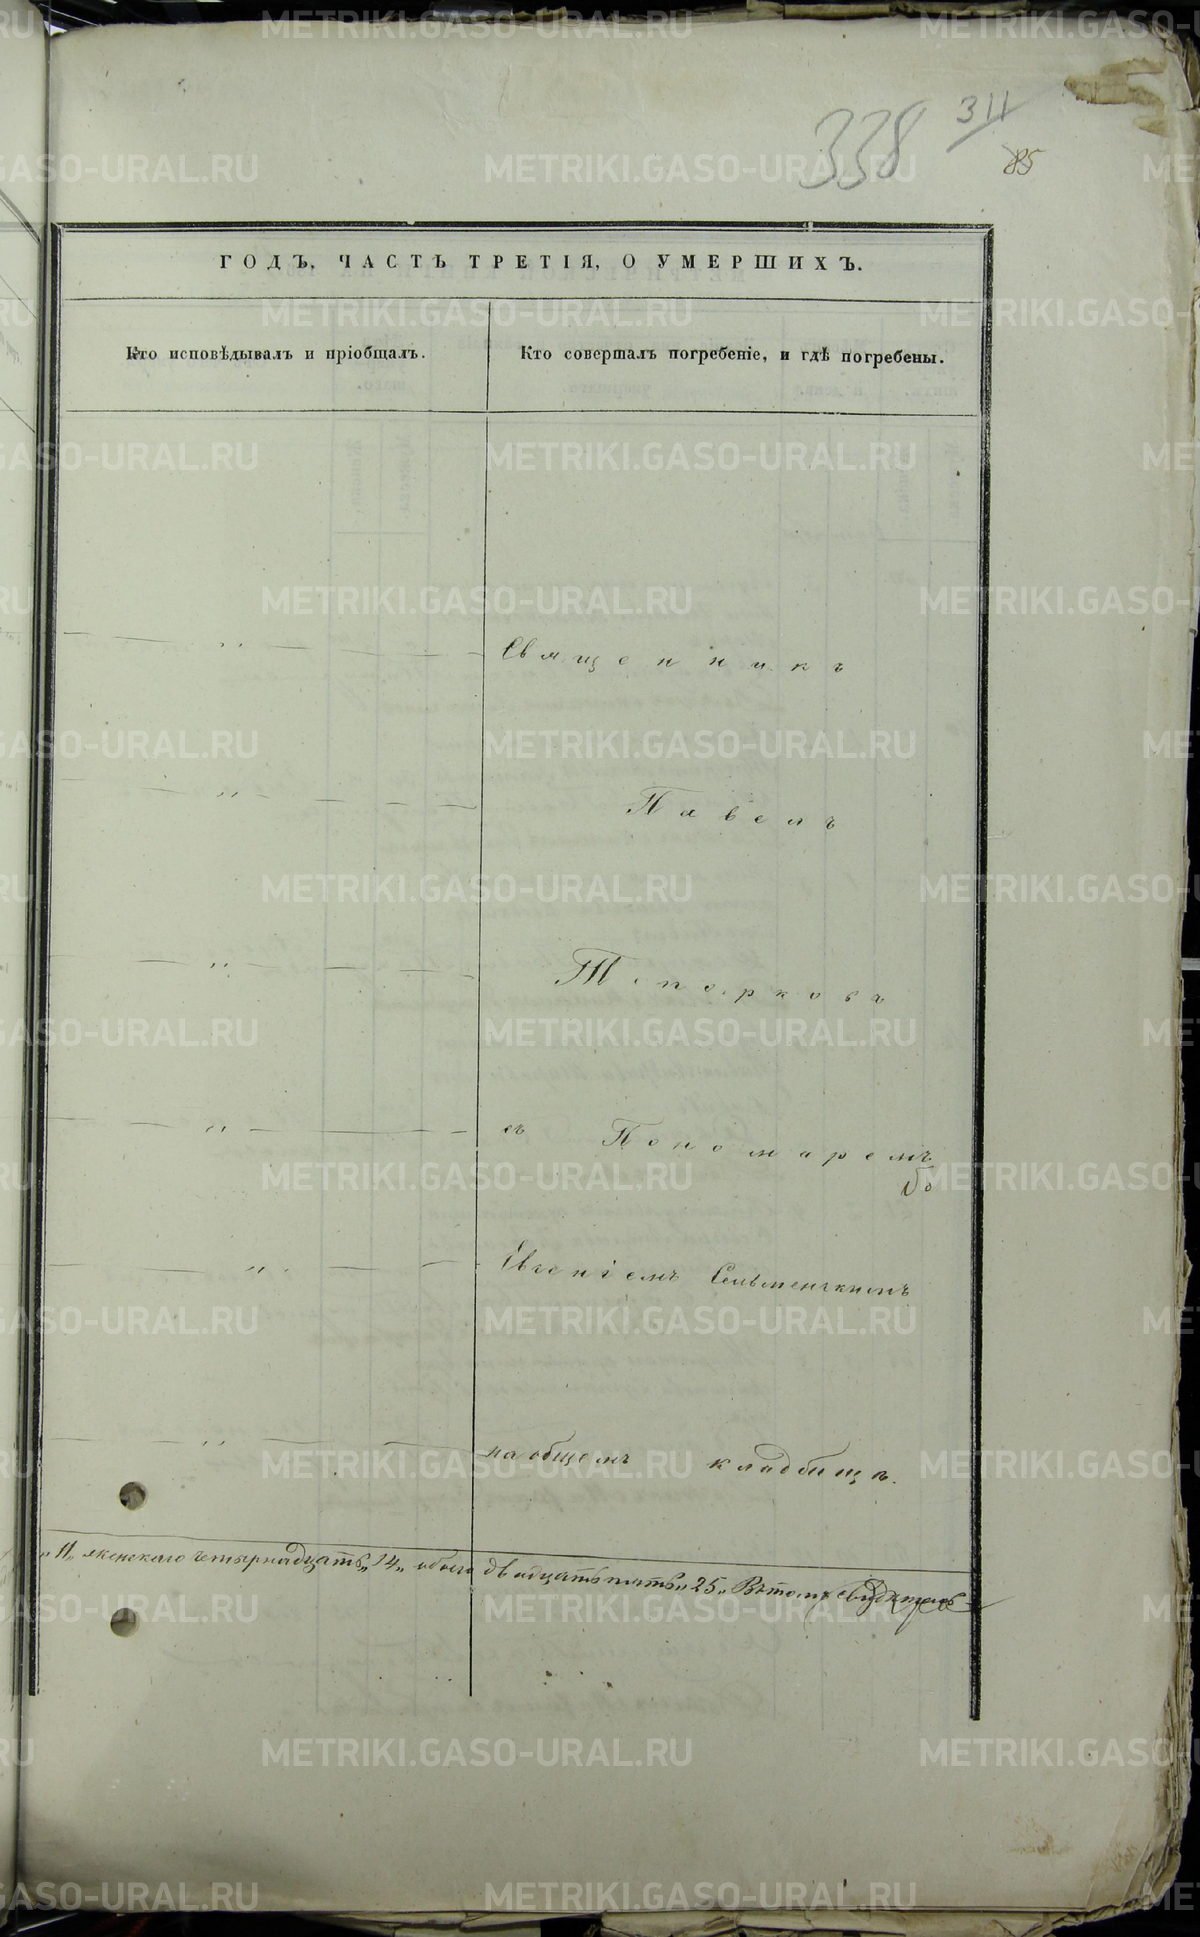 338
311
85
ГОДЪ, ЧАСТЬ ТРЕТІЯ, О УМЕРШИХЪ.
Кто исповѣдывалъ и пріобщалъ.
Кто совершалъ погребеніе, и гдѣ погребены.
Священникъ
Павелъ
Топорковъ
съ Пономаремъ
Евгеніемъ
на общемъ кладбищѣ.
„11„ женскаго четырнадцать„ 14„ обоего двадцатьпять„ 25„ Вѣтомъ
METRIKI.GASO-URAL.RU